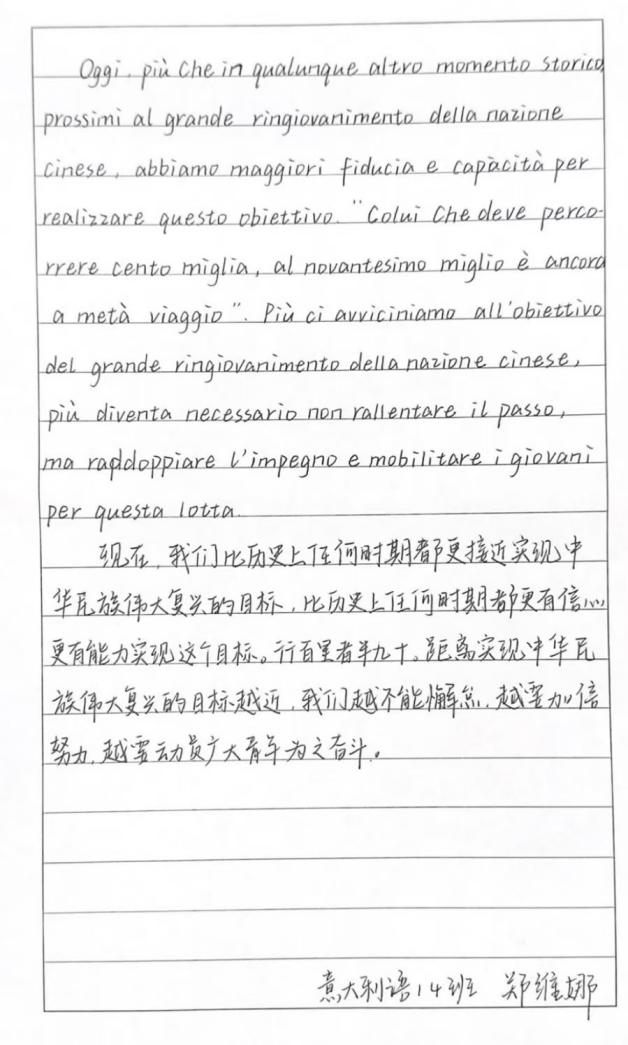 Oggi, più che in qualunque altro momento storico,
prossimi al grande ringiovanimento della nazione
cinese, abbiamo maggiori fiducia e capacità per
realizzare questo obiettivo. "Colui che deve perco-
rrere cento miglia, al novantesimo miglio è ancora
a metà viaggio". Più ci avviciniamo all'obiettivo
del grande ringiovanimento della nazione cinese,
più diventa necessario non rallentare il passo,
ma raddoppiare l'impegno e mobilitare i giovani
per questa lotta.
现在，我们比历史上任何时期都更接近实现中
华民族伟大复兴的目标，比历史上任何时期都更有信心
更有能力实现这个目标。行百里者半九十。距离实现中华民
族伟大复兴的目标越近，我们越不能懈怠，越要加倍
努力，越要动员广大青年为之奋斗。
意大利语14班 郑维娜